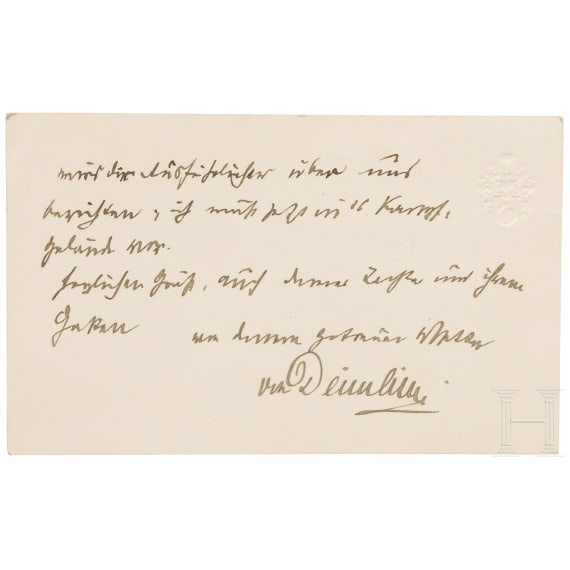 wird dir ausführlicher über uns
berichten, ich muß jetzt in's Kampf-
gelände vor.
Herzlichen Gruß, auch deiner Tochter und ihrem
Gatten
von deinem getreuen
von Deimling
H